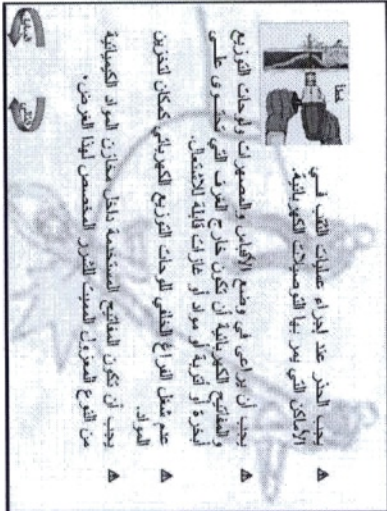 خطأ
⚠ يجب الحذر عند اجراء عمليات الثقب فـــي
الأماكن التي يمر بها التوصيلات الكهربائية.
⚠ يجب أن يراعى في وضع الأقباس والمصهرات ولوحات التوزيع
والمفاتيح الكهربائية أن تكون خارج الغرف التي تحتـــوى علـــى
أبخرة أو أتربة أو مواد أو غازات قابلة للاشتعال.
⚠ عدم شغل الفراغ الخلفي للوحات التوزيع الكهربائي كمكان لتخزين
المواد.
⚠ يجب أن تكون المفاتيح المستخدمة داخل مخازن المواد الكيميائية
من النوع المعزول المميت للشرر المخصص لهذا الغرض.